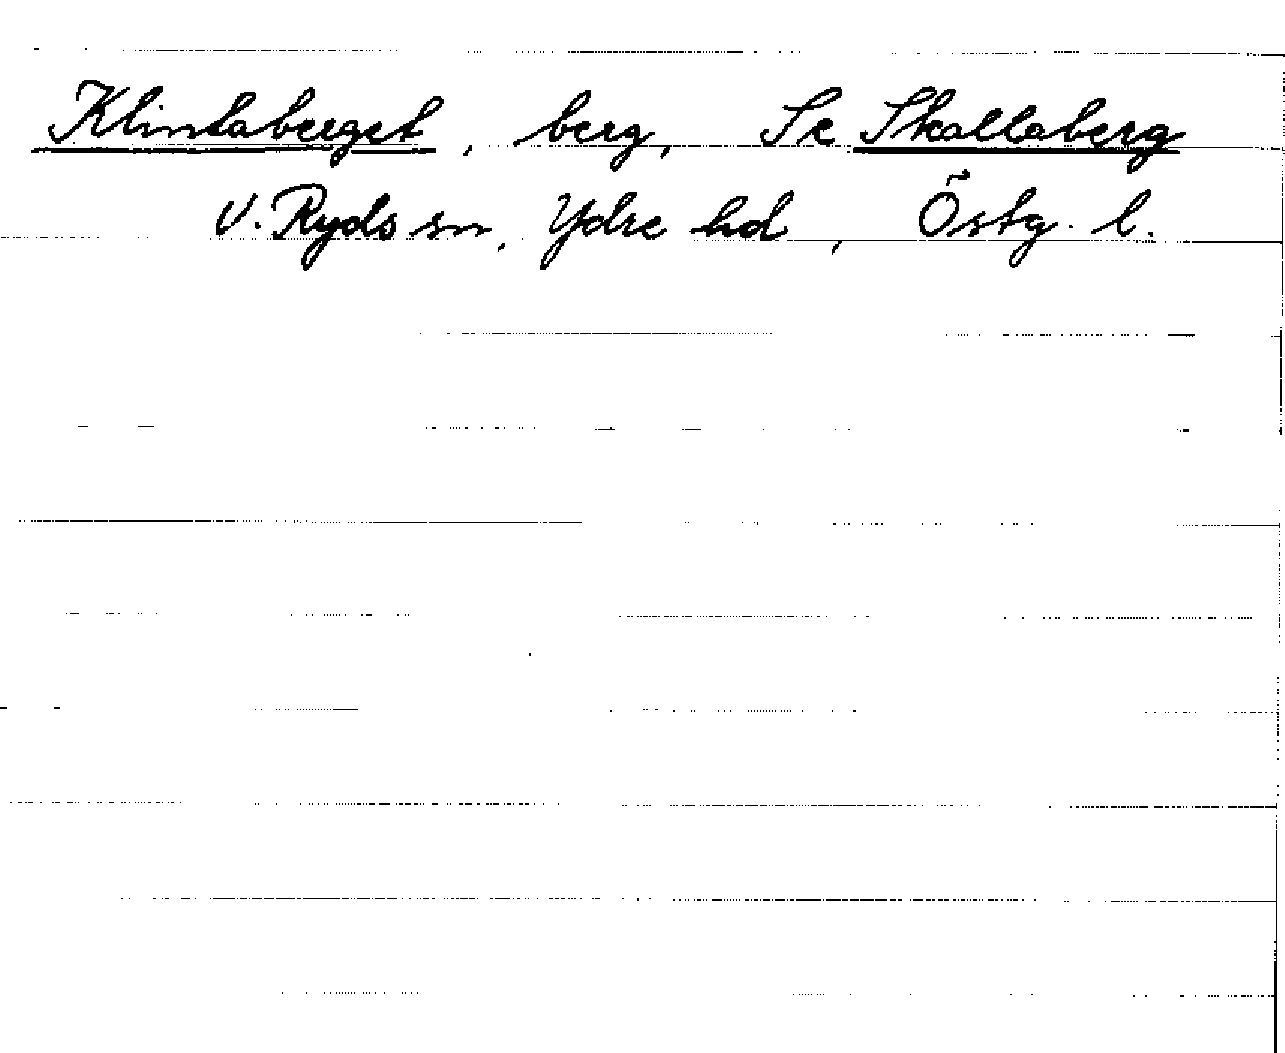 Klintaberget, berg, Se Skallaberg
V. Ryds sn, Ydre hd, Östg. l.